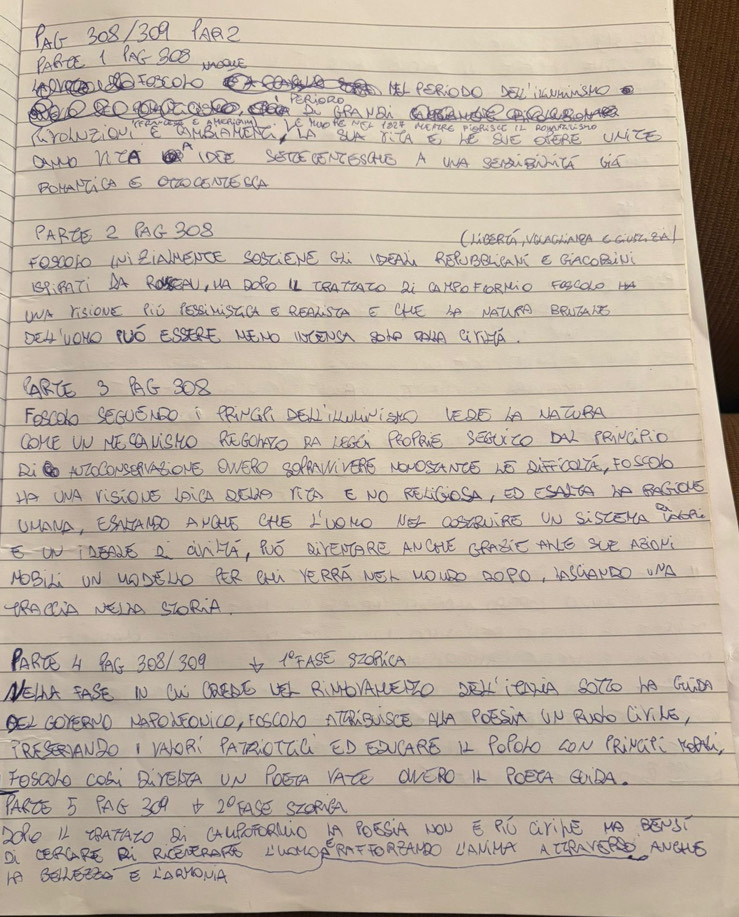 PAG 308/309 PAR2
PARTE 1 PAG 308
NACQUE
FOSCOLO NEL PERIODO DELL'ILLUMINISMO
PERIODO
DI GRANDI
FRANCESE E AMERICANA E MUORE NEL 1827 MENTRE FIORISCE IL ROMANTICISMO
RIVOLUZIONI E CAMBIAMENTI, LA SUA VITA E LE SUE OPERE UNITE
DANNO VITA A IDEE SETTECENTESCHE A UNA SENSIBILITÀ GIÀ
ROMANTICA E OTTOCENTESCA
PARTE 2 PAG 308
(LIBERTÀ, UGUAGLIANZA E GIUSTIZIA)
FOSCOLO INIZIALMENTE SOSTIENE GLI IDEALI REPUBBLICANI E GIACOBINI
ISPIRATI DA ROSSEAU, MA DOPO IL TRATTATO DI CAMPOFORMIO FOSCOLO HA
UNA VISIONE PIÙ PESSIMISTICA E REALISTA E CHE LA NATURA BRUTALE
DELL'UOMO PUÓ ESSERE MENO INTENSA SOLO DALLA CIVILTÀ.
PARTE 3 PAG 308
FOSCOLO SEGUENDO I PRINCIPI DELL'ILLUMINISMO VEDE LA NATURA
COME UN MECCANISMO REGOLATO DA LEGGI PROPRIE SEGUITO DAL PRINCIPIO
DI AUTOCONSERVAZIONE OVVERO SOPRAVVIVERE NONOSTANTE LE DIFFICOLTÀ, FOSCOLO
HA UNA VISIONE LAICA DELLA VITA E NO RELIGIOSA, ED ESALTA LA RAGIONE
UMANA, ESALTANDO ANCHE CHE L'UOMO NEL COSTRUIRE UN SISTEMA DI VALORI
E UN IDEALE DI CIVILTÁ, PUÓ DIVENTARE ANCHE GRAZIE ALLE SUE AZIONI
NOBILI UN MODELLO PER CHI VERRÁ NEL MONDO DOPO, LASCIANDO UNA
TRACCIA NELLA STORIA.
PARTE 4 PAG 308/309 ↓ 1° FASE STORICA
NELLA FASE IN CUI CREDE NEL RINNOVAMENTO DELL'ITALIA SOTTO LA GUIDA
DEL GOVERNO NAPOLEONICO, FOSCOLO ATTRIBUISCE ALLA POESIA UN RUOLO CIVILE,
PRESERVANDO I VALORI PATRIOTTICI ED EDUCARE IL POPOLO CON PRINCIPI MORALI,
FOSCOLO COSÌ DIVENTA UN POETA VATE OVVERO IL POETA GUIDA.
PARTE 5 PAG 309 ↓ 2° FASE STORICA
DOPO IL TRATTATO DI CAMPOFORMIO LA POESIA NON È PIÙ CIVILE MA BENSÌ
DI CERCARE DI RIGENERARE L'UOMO E RAFFORZANDO L'ANIMA ATTRAVERSO ANCHE
LA BELLEZZA E L'ARMONIA